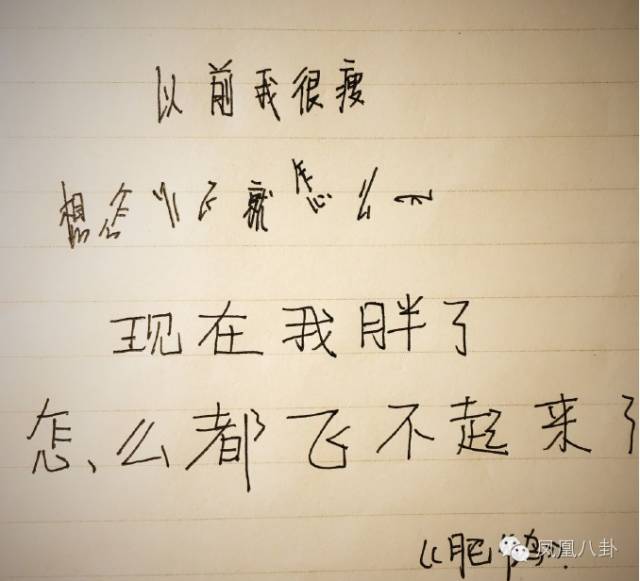 以前我很瘦
想怎么飞就怎么飞
现在我胖了
怎么都飞不起来了
《肥鸟》
凤凰八卦